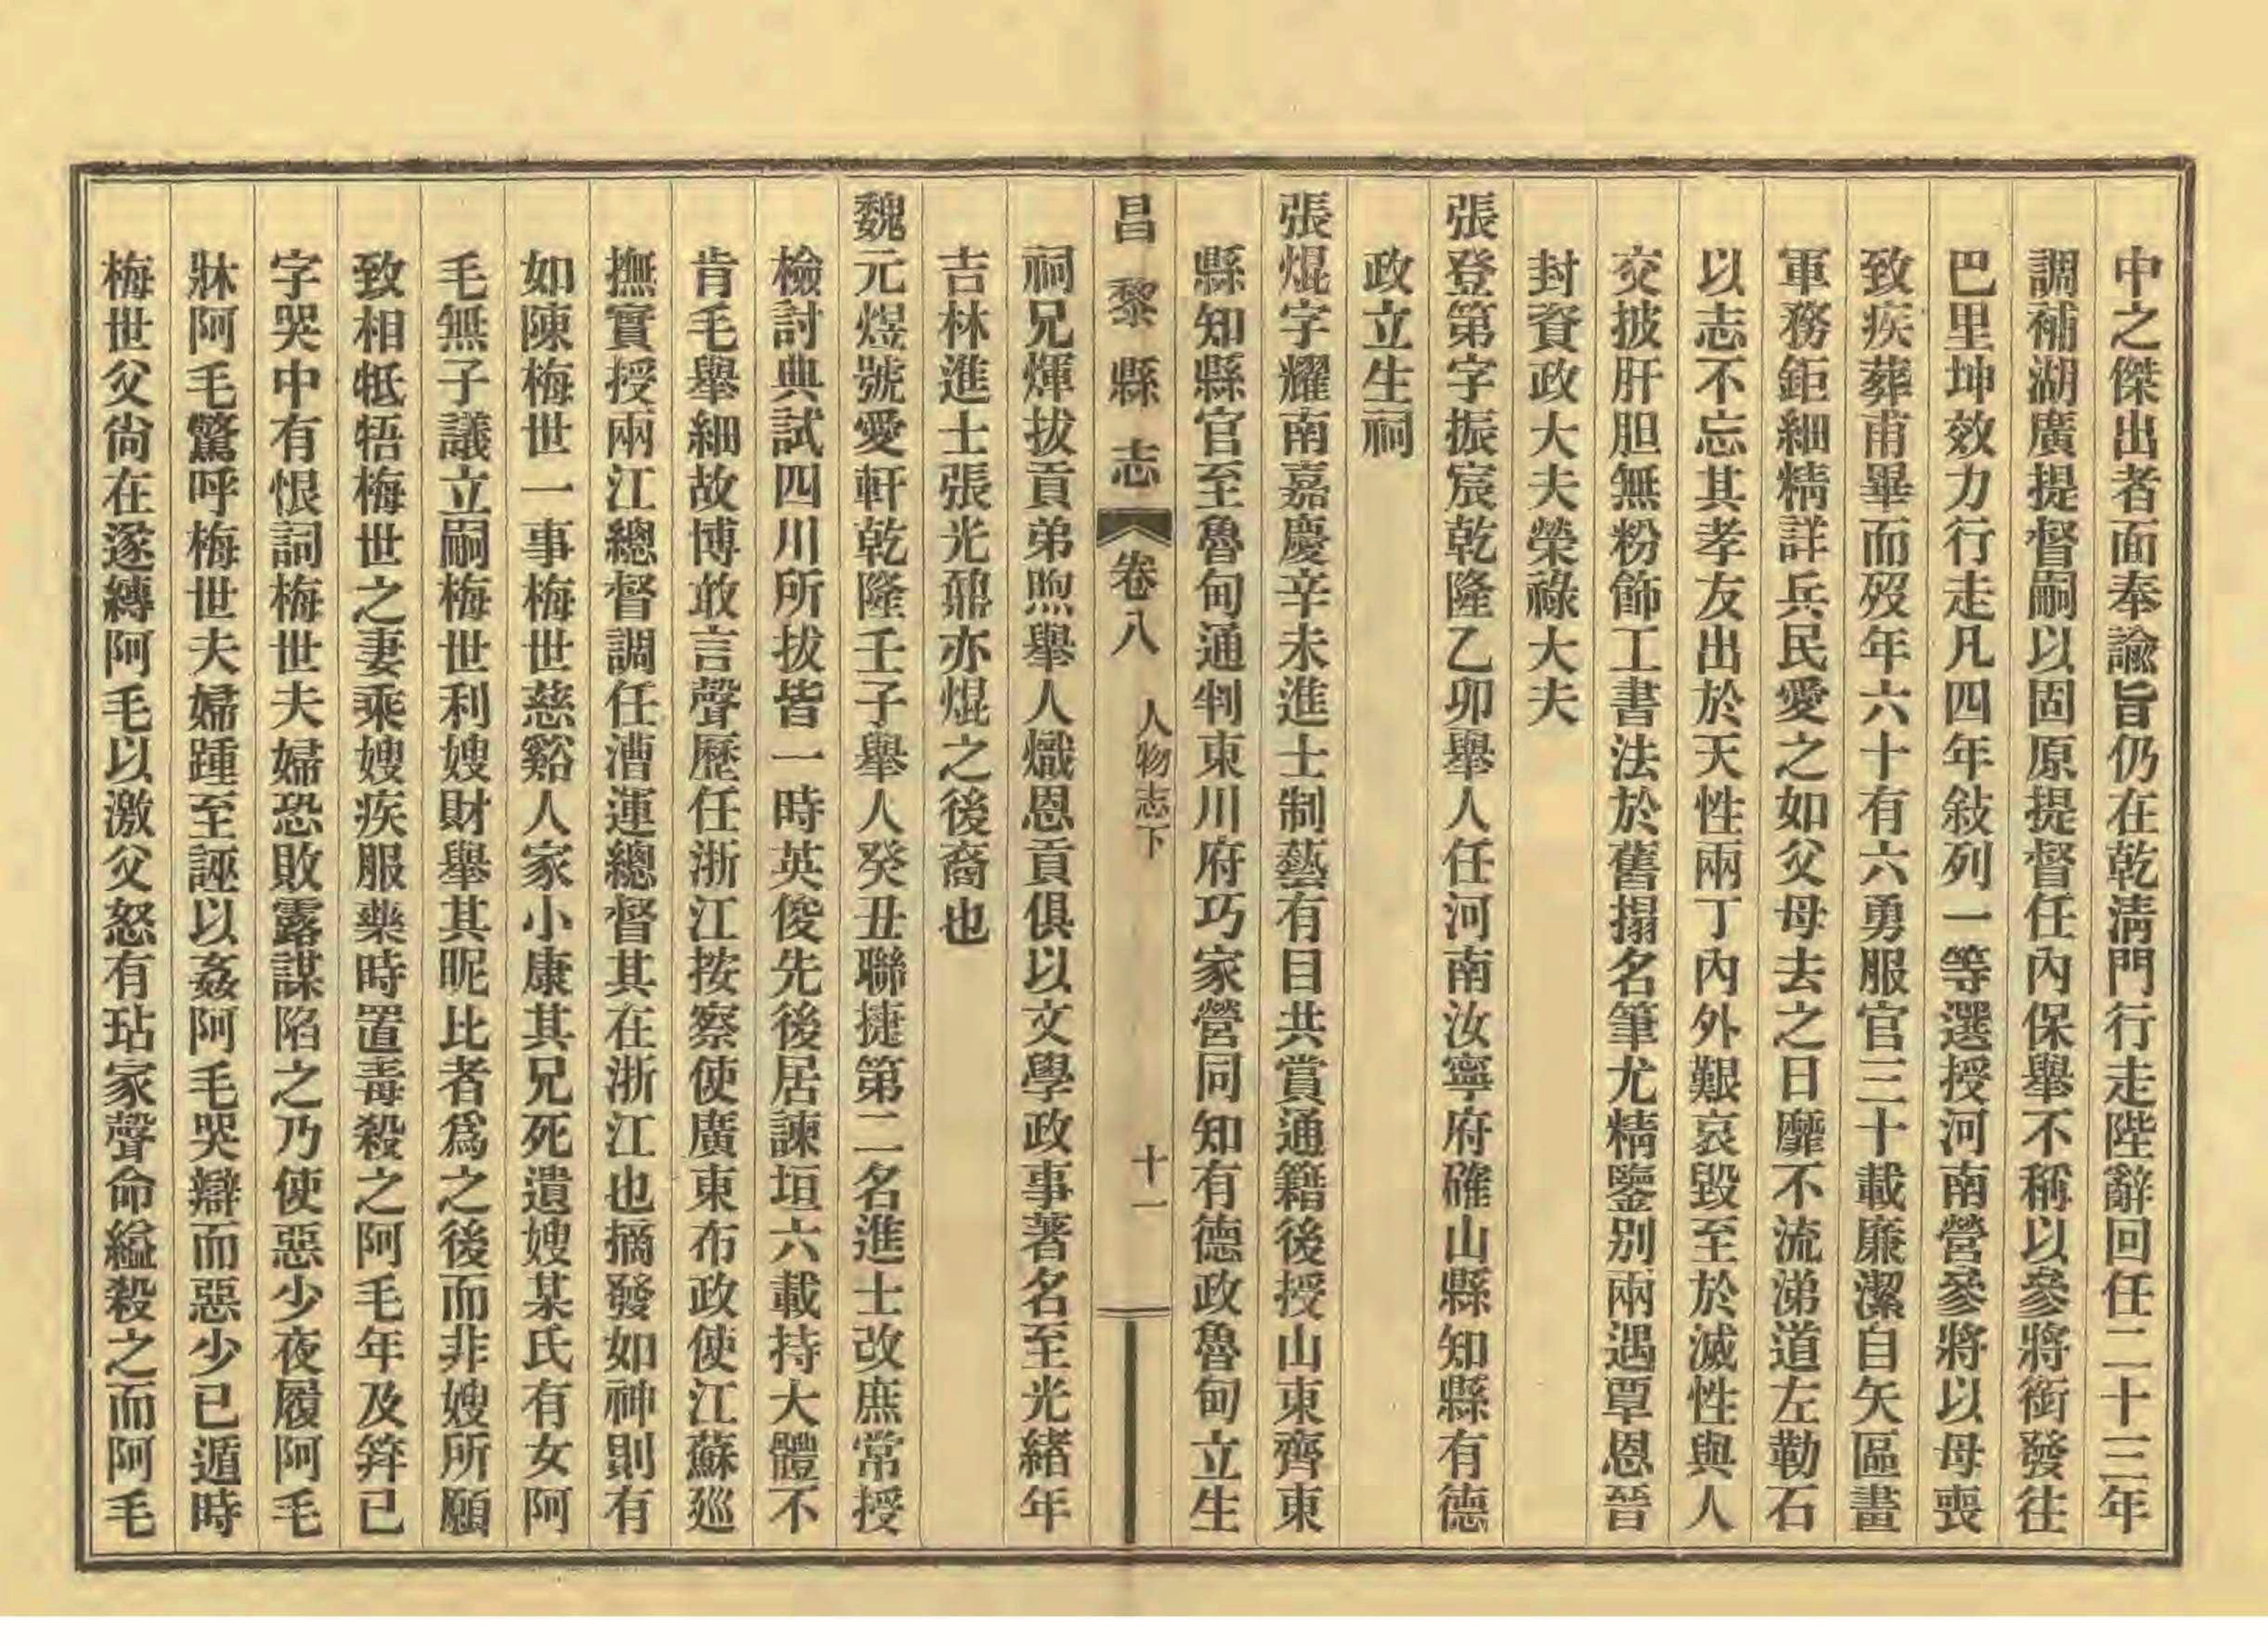 中之傑出者面奉諭旨仍在乾淸門行走陛辭回任二十三年
調補湖廣提督嗣以固原提督任內保舉不稱以參將銜發往
巴里坤效力行走凡四年敍列一等選授河南營參將以母喪
致疾葬甫畢而歿年六十有六勇服官三十載廉潔自矢區畫
軍務鉅細精詳兵民愛之如父母去之日靡不流涕道左勒石
以志不忘其孝友出於天性兩丁內外艱哀毀至於滅性與人
交披肝胆無粉飾工書法於舊搨名筆尤精鑒別兩遇覃恩晉
封資政大夫榮祿大夫
張登第字振宸乾隆乙卯舉人任河南汝寧府確山縣知縣有德
政立生祠
張焜字耀南嘉慶辛未進士制藝有目共賞通籍後授山東齊東
縣知縣官至魯甸通判東川府巧家營同知有德政魯甸立生
昌黎縣志 卷八 人物志下 十一
祠兄煇拔貢弟煦舉人熾恩貢俱以文學政事著名至光緒年
吉林進士張光鼐亦焜之後裔也
魏元煜號愛軒乾隆壬子舉人癸丑聯捷第二名進士改庶常授
檢討典試四川所拔皆一時英俊先後居諫垣六載持大體不
肯毛舉細故博敢言聲歷任浙江按察使廣東布政使江蘇巡
撫實授兩江總督調任漕運總督其在浙江也摘發如神則有
如陳梅世一事梅世慈谿人家小康其兄死遺嫂某氏有女阿
毛無子議立嗣梅世利嫂財舉其昵比者爲之後而非嫂所願
致相牴牾梅世之妻乘嫂疾服藥時置毒殺之阿毛年及笄已
字哭中有恨詞梅世夫婦恐敗露謀陷之乃使惡少夜履阿毛
牀阿毛驚呼梅世夫婦踵至誣以姦阿毛哭辯而惡少已遁時
梅世父尙在遂縛阿毛以激父怒有玷家聲命縊殺之而阿毛